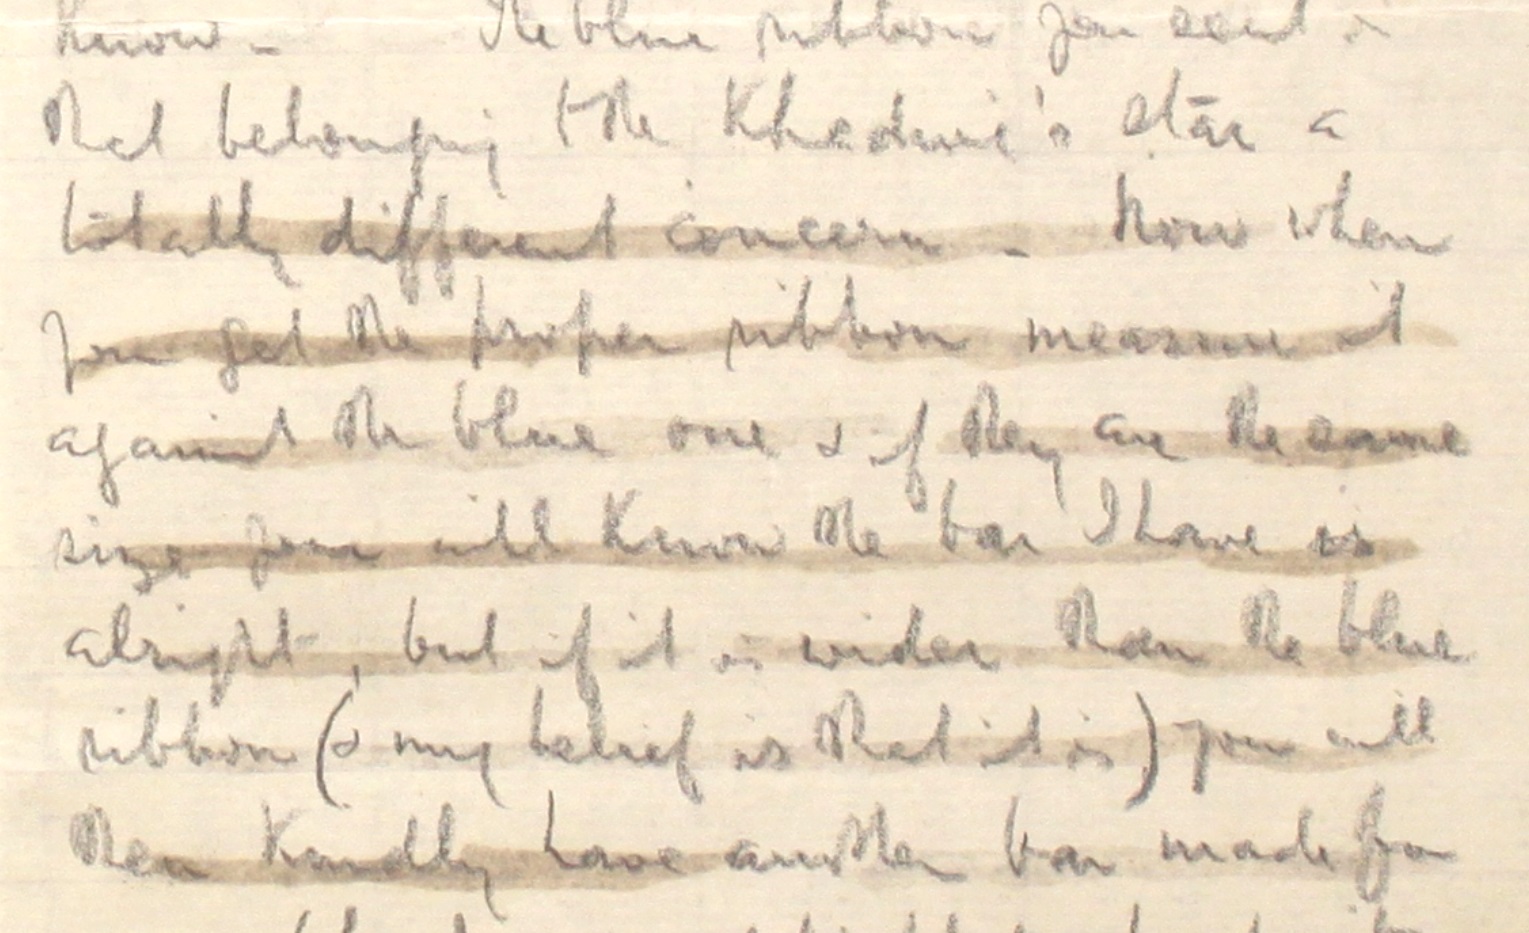 know - The blue ribbon you sent is
that belonging t the Khedive's star a
totally different concern - Now when
you get the proper ribbon measure it
against the blue one & if they are the same
size you will know the bar I have is
alright, but if it is wider than the blue
ribbon (& my belief is that it is) you will
then kindly have another bar made for